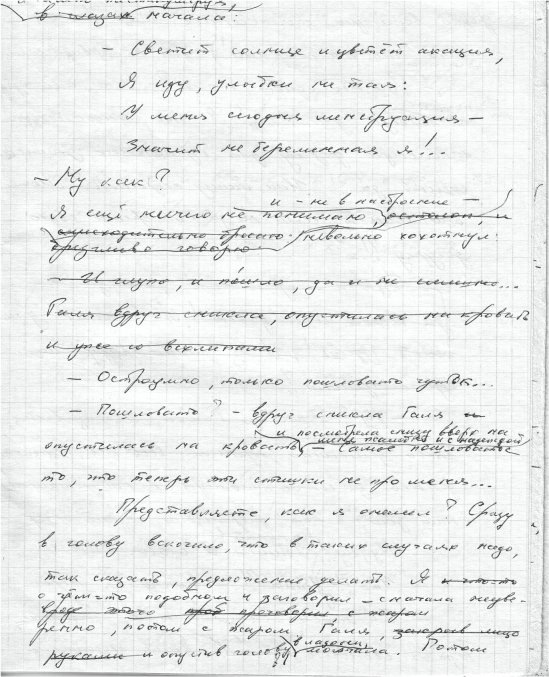 в глазах начала:
– Светит солнце и цветёт акация,
Я иду, улыбки не тая:
У меня сегодня менструация –
Значит не беременная я!..
– Ну как?
и – не в настроение –
Я ещё ничего не понимаю,
снисходительно бросаю: невольно хохотнул:
бредливо говорю
– И глупо, и пошло, да и не смешно...
Галя вдруг сникла, опустилась на кровать
и уже со всхлипами
– Остроумно, только пошловато чуток...
– Пошловато? – вдруг сникла Галя
и посмотрела снизу вверх на
меня жалобно и с надеждой
опустилась на кровать – Самое пошловатое
то, что теперь эти стишки не про меня...
Представляете, как я онемел? Сразу
в голову вскочило, что в таких случаях надо,
так сказать, предложение делать. Я и что-то
о чём-то подобном и заговорил – сначала неуве-
вроде этого проговорил с жаром
ренно, потом с жаром. Галя, закрыв лицо
руками и опустив голову в ладони, молчала. Потом